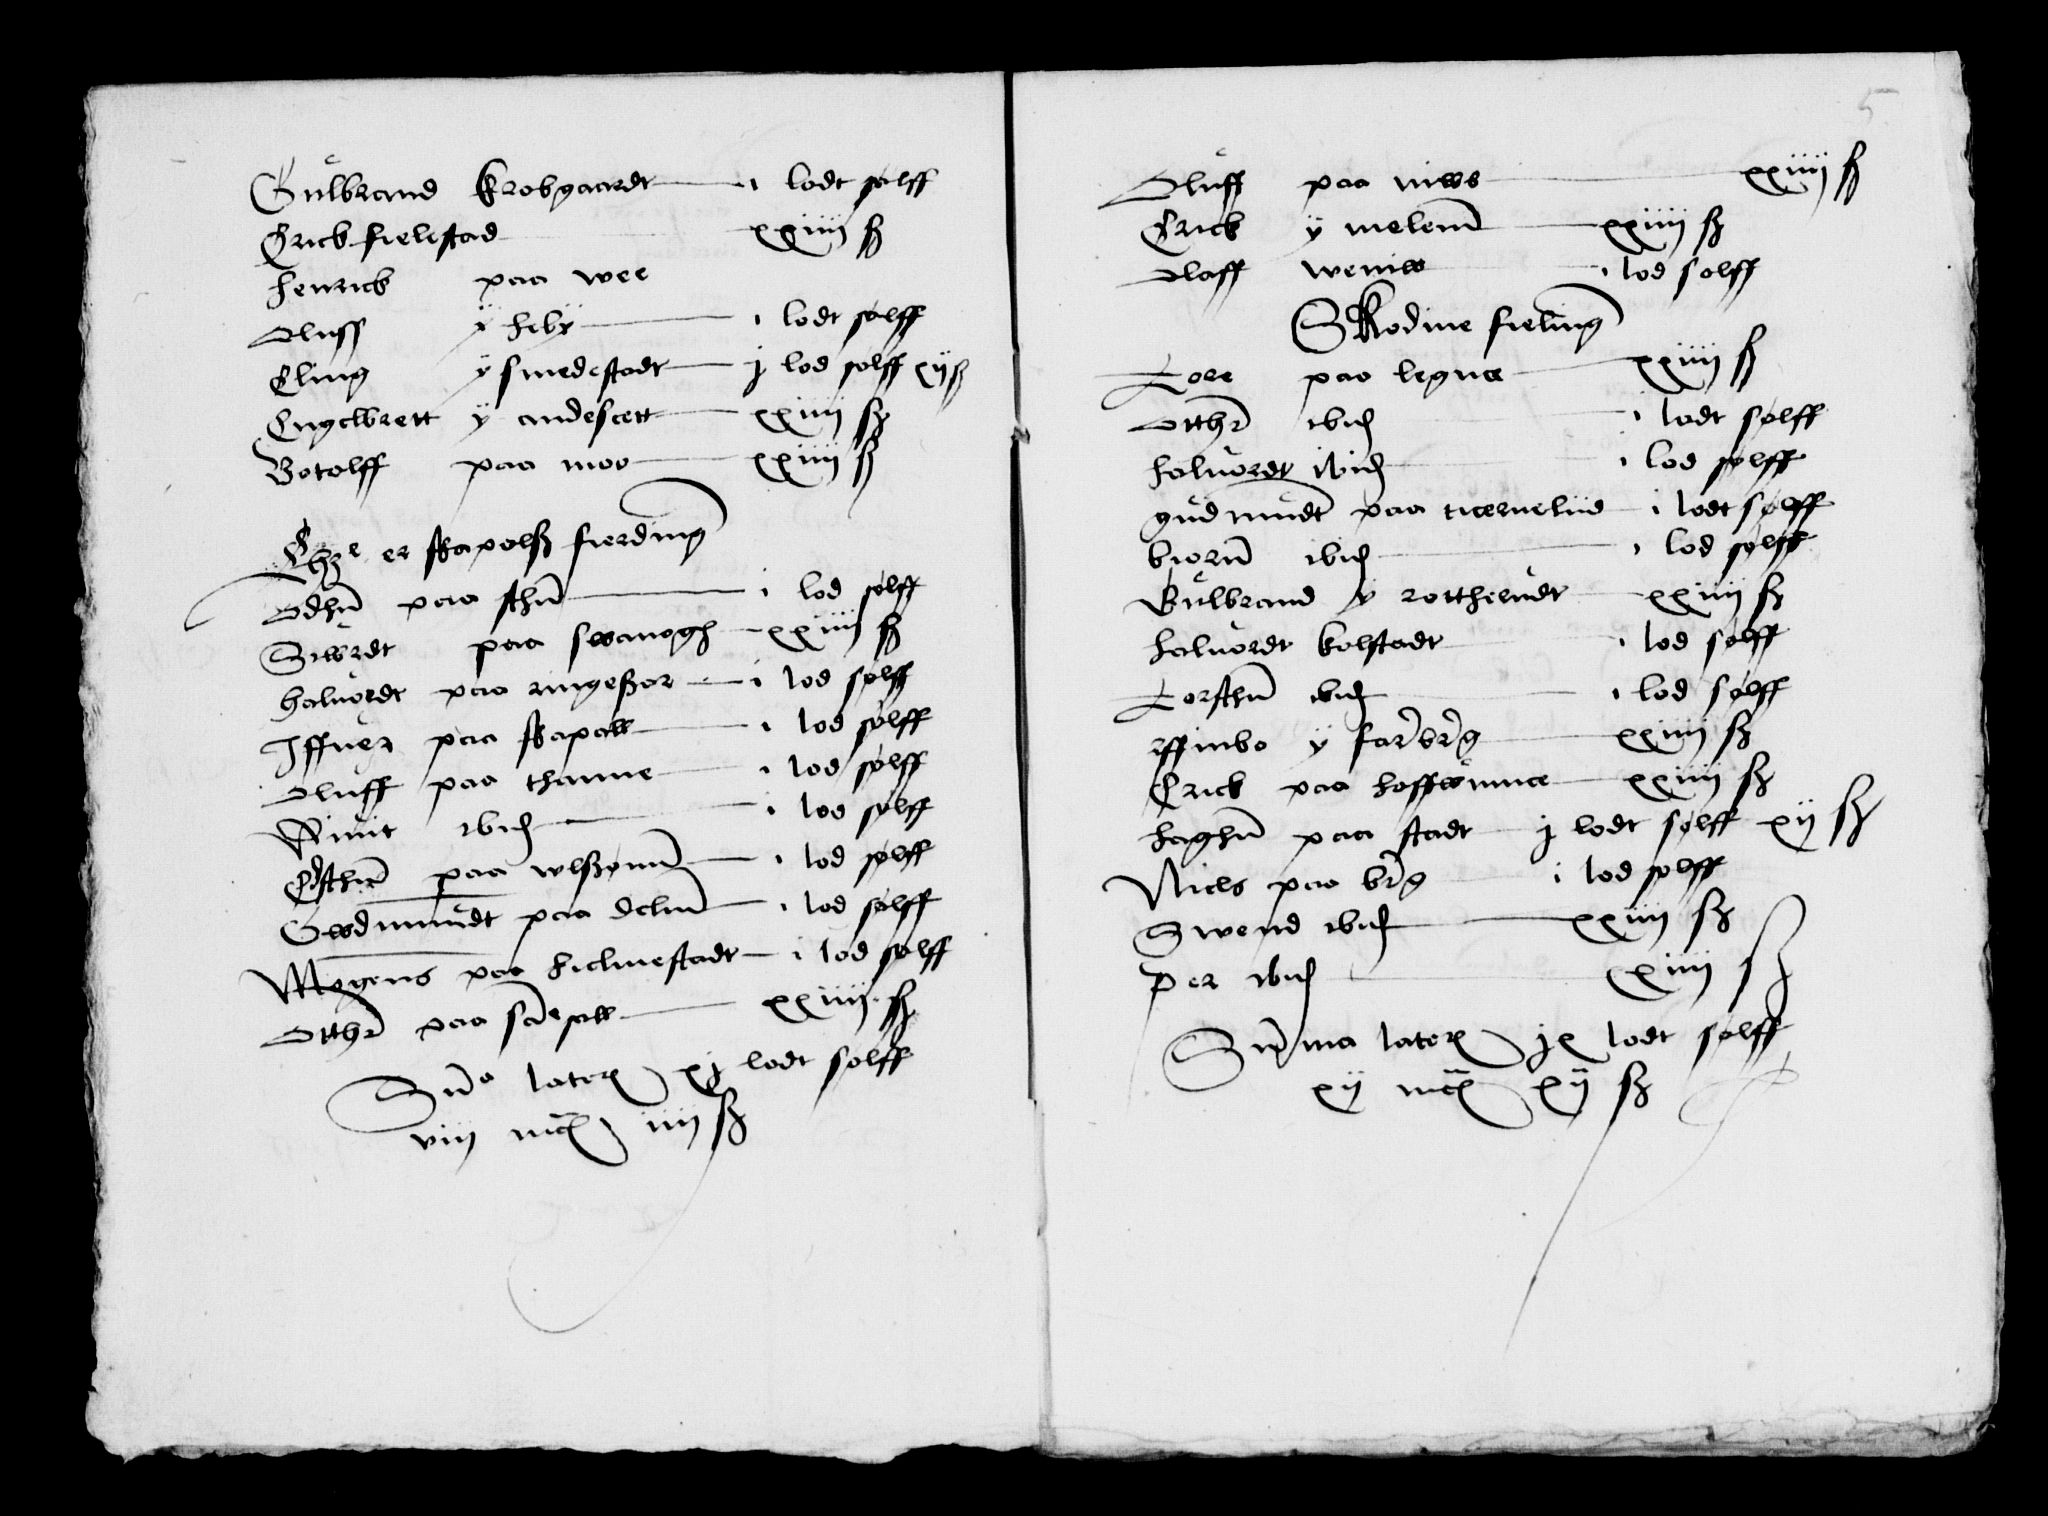 Gulbrand Krobgaardt i lodt sølff
Erick fielestad xxiiij ß
Henrick paa wee
Oluff ÿ heby i lodt sølff
Eling ÿ smedestadt j lod sølff xij ß
Engelbrett ÿ andescett xxiiij ß
Botolff paa moo xxiiij ß
Ehre er skapolß fierding
Odhū paa sthū i lod sølff
Siwrdt paa swanogh xxiiij ß
Haluordt paa ringeßar i lod sølff
Iffuer paa skapall i lod sølff
Oluff paa thanne i lod sølff
Winit ibid i lod sølff
Esthē paa wlßomū i lod sølff
Gwdmundt paa delin i lod sølff
Mogens paa hielmestadt i lod sølff
Otthr paa saxall xxiiij ß
Sūa later xj lodt sølff
viij mc iiij ß
5
Oluff paa niws xxiiij ß
Erick ÿ melem xxiiij ß
Olaff weniw i lod sølff
Skodine fieling
Tore paa legnæ xxiiij ß
Otthr ibid i lodt sølff
Haluordt ibid i lod sølff
Gudmundt paa tiærneliid i lodt sølff
biorn ibid i lod sølff
Gulbrand ÿ rottherudt xxiiij ß
Haluordt kolstadt i lod sølff
Torsthē ibid i lod sølff
Effinbo ÿ farbrg xxiiij ß
Erick paa hoffwinnæ xxiiij ß
Haghū paa stadt j lodt sølff xij ß
Niels paa brg i lod sølff
Swend ibid xxiiij ß
Per ibid xxiiij ß
Sūma later jx lodt sølff
xij mc xij ß